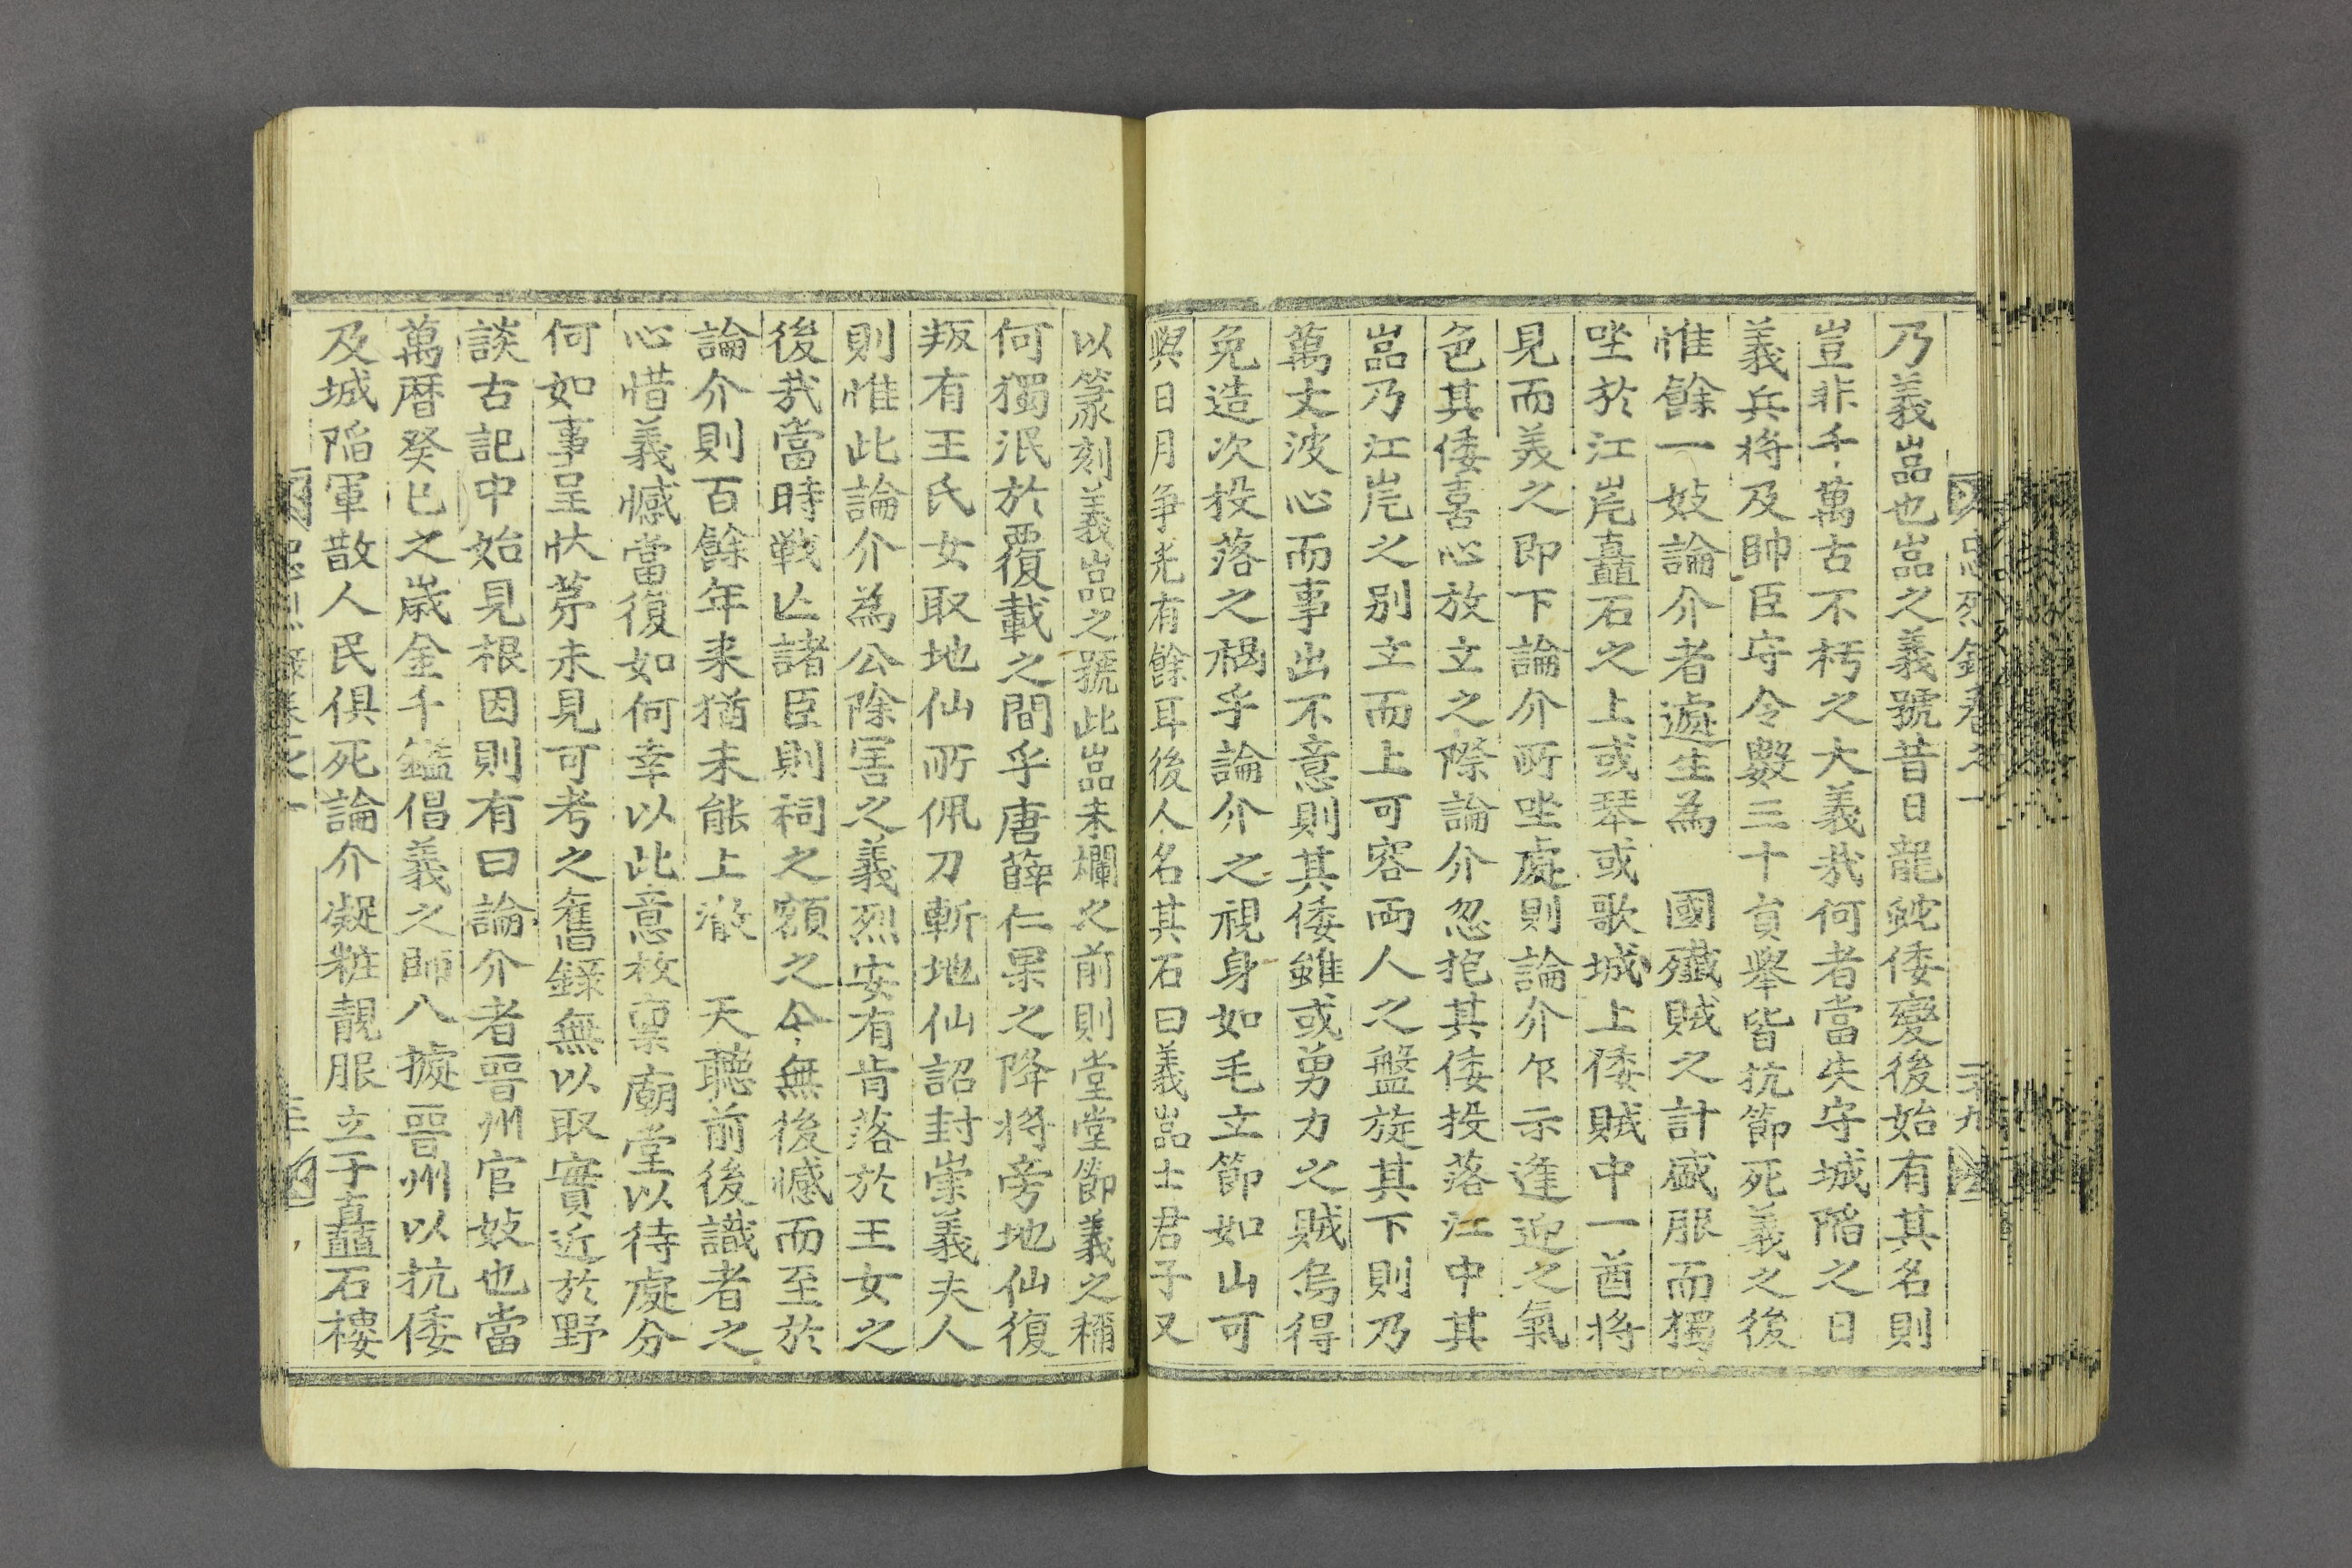 乃義嵒也嵒之義號昔日龍蛇倭變後始有其名則
豈非千萬古不朽之大義㢤何者當失守城陷之日
義兵將及帥臣守令數三十員擧皆抗節死義之後
惟餘一妓論介者處生為 國殲賊之計盛服而獨
坐於江岸矗石之上或琴或歌城上倭賊中一酋將
見而美之即下論介所坐處則論介乍示逢迎之氣
色其倭喜心放立之際論介忽抱其倭投落江中其
嵒乃江岸之別立而上可容両人之盤旋其下則乃
萬丈波心而事出不意則其倭雖或勇力之賊烏得
免造次投落之禍乎論介之視身如毛立節如山可
與日月争光有餘耳後人名其石曰義嵒士君子又
以篆刻義嵒之號此嵒未爛之前則堂堂節義之稱
何獨泯於覆載之間乎唐薛仁杲之降將旁地仙復
叛有王氏女取地仙所佩刀斬地仙詔封崇義夫人
則惟此論介為公除害之義烈安有肯落於王女之
後㢤當時戰亾諸臣則祠之額之今無後憾而至於
論介則百餘年来猶未能上澈 天聽前後識者之
心惜義憾當復如何幸以此意枚稟廟堂以待處分
何如事呈狀苐未見可考之舊錄無以取實近於野
談古記中始見根因則有曰論介者晋州官妓也當
萬曆癸巳之歲金千鎰倡義之師入據晋州以抗倭
及城陷軍散人民俱死論介凝粧靚服立于矗石樓